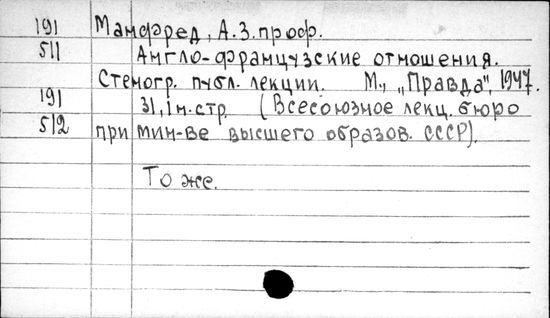 191 Манфред, А.З. проф.
511 Англо-французские отношения.
Стеногр. публ. лекции. М., „Правда", 1947.
191 31, 1н. стр. (Всесоюзное лекц. бюро
512 при мин-ве высшего образов. СССР).
То же.